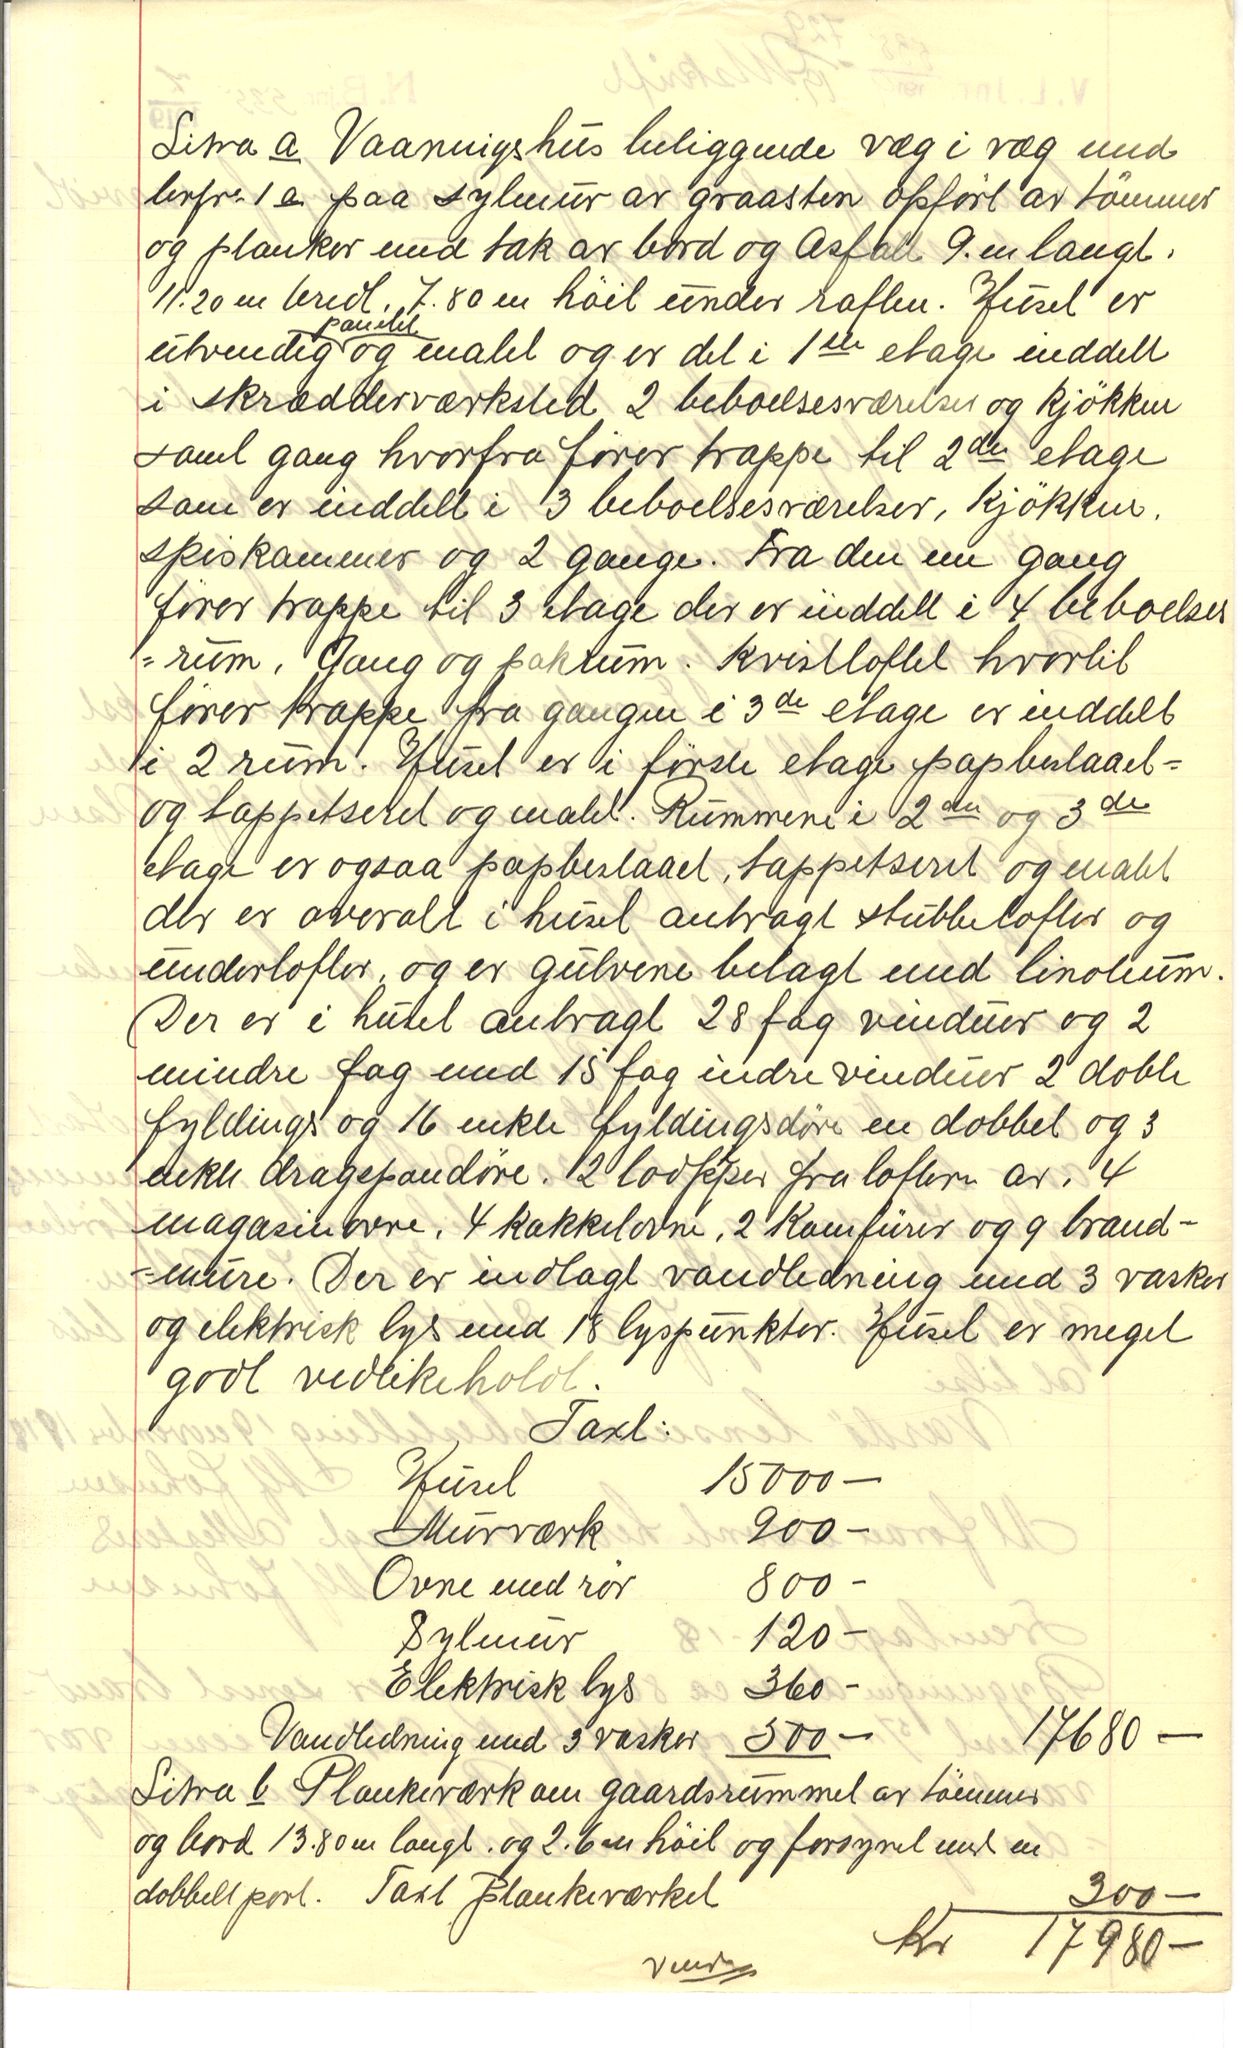 Litra a Vaaningshus beliggende væg i væg med
brfr. 1 a paa sylmur av graasten opført av tömmer
og planker med tak av bord og Asfalt 9. m langt.
11.20 m bredt. 7.80 m höit under raften. Huset er
panelt
utvendig og malet og er det i 1ste etage inddelt
i skrædderværksted 2 beboelsesværelser og kjökken
samt gang hvorfra fører trappe til 2den etage
som er inddelt i 3 beboelsesværelser, kjökken,
spiskammer og 2 gange. Fra den ene gang
fører trappe til 3 etage der er inddelt i 4 beboelses
=rum, Gang og pakrum. Kvistloftet hvortil
fører trappe fra gangen i 3de etage er inddelt
i 2 rum. Huset er i første etage papbeslaaet=
og tappetseret og malet. Rummene i 2den og 3de
etage er ogsaa papbeslaaet, tappetseret og malet
der er overalt i huset anbragt stubbelofter og
underlofter, og er gulvene belagt med linoleum.
Der er i huset anbragt 28 fag vinduer og 2
mindre fag med 15 fag indre vinduer 2 doble
fyldings og 16 enkle fyldingsdøre en dobbel og 3
enkle dragepandøre. 2 lodpiper fra loftern av. 4
magasinovne, 4 kakkelovne, 2 Komfürer og 9 brand-
=mure. Der er indlagt vandledning med 3 vasker
og elektrisk lys med 18 lyspunkter. Huset er meget
godt vedlikeholdt.
Taxt:
Huset 15000 —
Murværk 900 —
Ovne med rör 800 -
Sylmur 120 —
Elektrisk lys 360 -
Vandledning med 3 vasker 500 — 17680 —
Litra b Plankeværk om gaardsrummet av tömmer
og bord 13.80 m langt. og 2.6 m höit og forsynet med en
dobbelt port. Taxt plankeværket 300 —
Kr 17980 —
vend